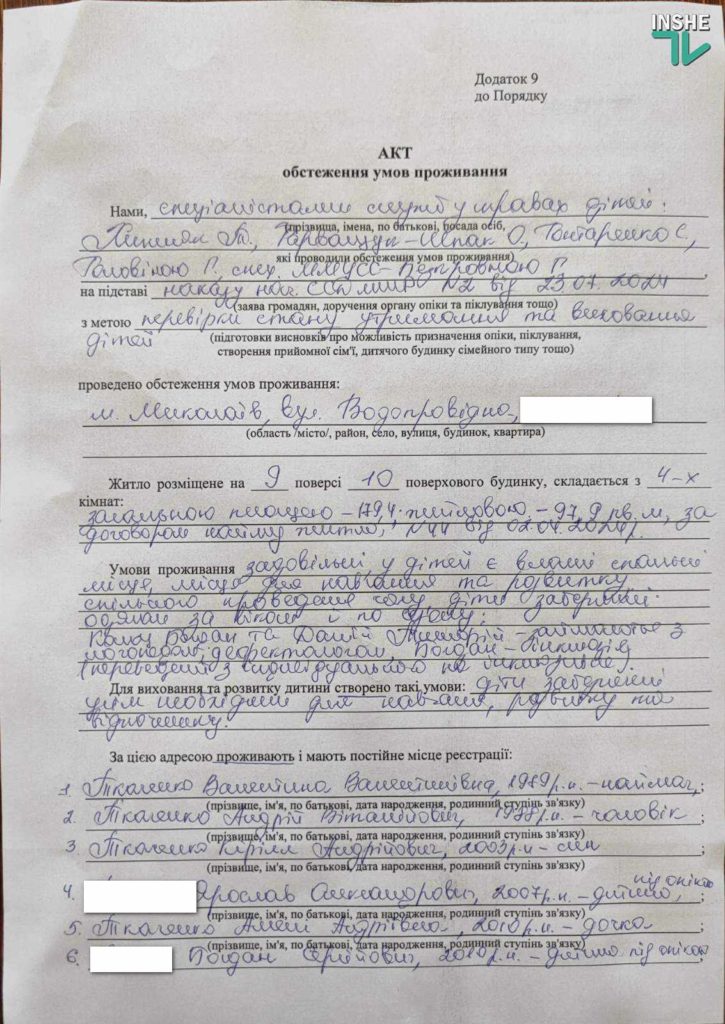 INSHE
TV
Додаток 9
до Порядку
АКТ
обстеження умов проживання
Нами, спеціалістами служб у правах дітей:
(прізвища, імена, по батькові, посада осіб,
О, Гонтаренко С,
які проводили обстеження умов проживання)
Головіною Г, спец.
на підставі наказу нач. ССД ММР №2 від 23.07.2024
(заява громадян, доручення органу опіки та піклування тощо)
з метою перевірки стану утримання та виховання
дітей (підготовки висновків про можливість призначення опіки, піклування,
створення прийомної сім'ї, дитячого будинку сімейного типу тощо)
проведено обстеження умов проживання:
м. Миколаїв, вул. Водопровідна,
(область /місто/, район, село, вулиця, будинок, квартира)
Житло розміщене на 9 поверсі 10 поверхового будинку, складається з 4-х
кімнат:
загальною площею – 179,4, житловою – 97,9 кв.м, за
договором найму житла, №44 від 02.04.2024р.
Умови проживання задовільні, у дітей є власні спальні
місця, місця для навчання та розвитку,
спільного проведення часу, діти забезпечені
одягом за віком і по сезону.
Богдан та Даній займаються з
логопедом, дефектологом, Богдан – інклюзія
(переведений з індивідуального на інклюзивне).
Для виховання та розвитку дитини створено такі умови: діти забезпечені
усім необхідним для навчання, розвитку та
відпочинку.
За цією адресою проживають і мають постійне місце реєстрації:
1. Ткаченко Валентина Валентинівна, 1989р.н. – наймач;
(прізвище, ім'я, по батькові, дата народження, родинний ступінь зв'язку)
2. Ткаченко Андрій Віталійович, р.н. – чоловік
(прізвище, ім'я, по батькові, дата народження, родинний ступінь зв'язку)
3. Ткаченко Кіріл Андрійович, 2003р.н – син ;
(прізвище, ім'я, по батькові, дата народження, родинний ступінь зв'язку)
4. Ярослав Олександрович, 2007р.н. – дитина під опікою, ;
(прізвище, ім'я, по батькові, дата народження, родинний ступінь зв'язку)
5. Ткаченко Амелі Андріївна, 2010р.н. – дочка ;
(прізвище, ім'я, по батькові, дата народження, родинний ступінь зв'язку)
6. Богдан Сергійович, 2010р.н. – дитина під опікою